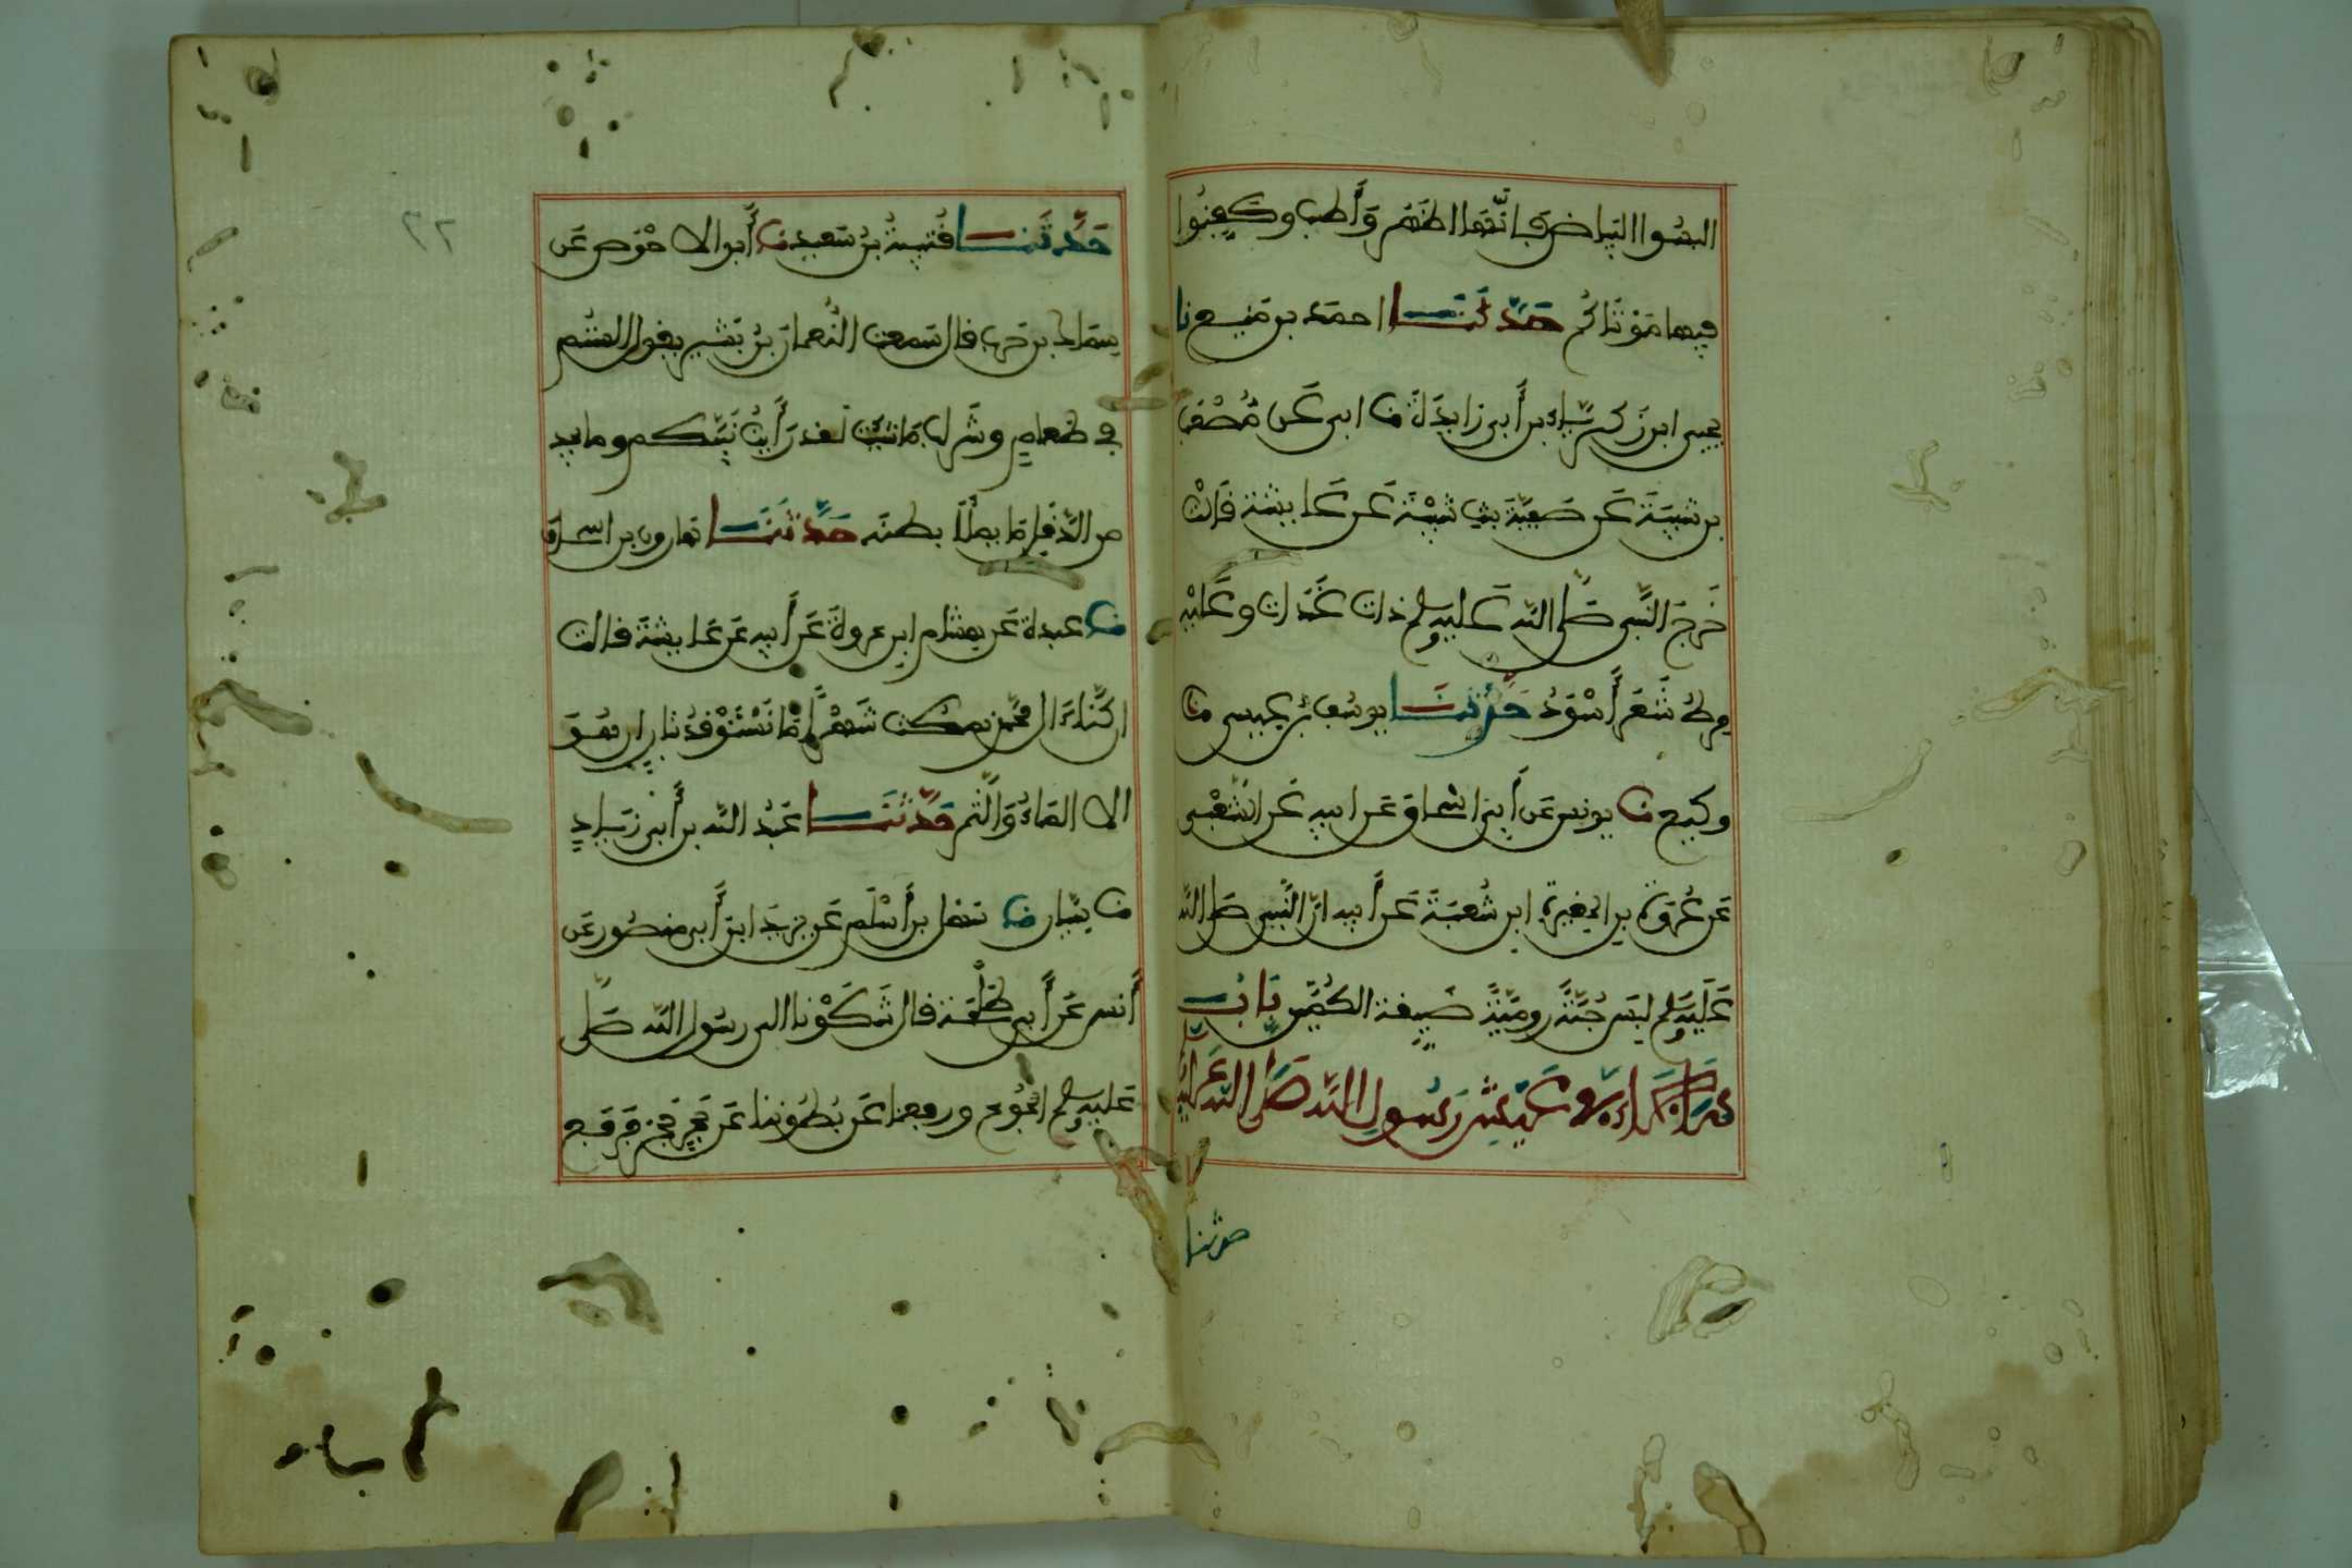 البسوا البياض فانها اطهر وأطيب وكفنوا
فيها موتاكم حدثنا احمد بن منيع نا
يحيى ابن زكرياء بن أبي زايدة نا ابي عن مصعب
بن شيبة عن صفية بنت شيبة عن عايشة قالت
خرج النبي صلى الله عليه وسلم ذات غداة وعليه
مرط شعر أسود حدثنا يوسف بن عيسى نا
وكيع نا يونس عن أبي اسحاق عن ابيه عن الشعبي
عن عروة بن المغيرة ابن شعبة عن أبيه ان النبي صلى الله
عليه وسلم لبس جبة رومية ضيقة الكمين باب
ما جاء في عيش رسول الله صلى الله عليه
حدثنا
٢٢
حدثنا قتيبة بن سعيد نا أبو الاحوص عن
سماك بن حرب قال سمعت النعمان بن بشير يقول الستم
في طعام وشراب ما شيتم لقد رأيت نبيكم وما يجد
من الدقل ما يملأ بطنه حدثنا هارون بن اسحاق
نا عبدة عن هشام ابن عروة عن أبيه عن عايشة قالت
ان كنا ءال محمد نمكث شهرا ما نستوقد نارا ان هو
الا الماء والتمر حدثنا عبد الله بن أبي زياد
نا سيار نا سهل بن أسلم عن يزيد ابن أبي منصور عن
أنس عن أبي طلحة قال شكونا الى رسول الله صلى
عليه وسلم الجوع ورفعنا عن بطوننا عن حجر حجر فرفع